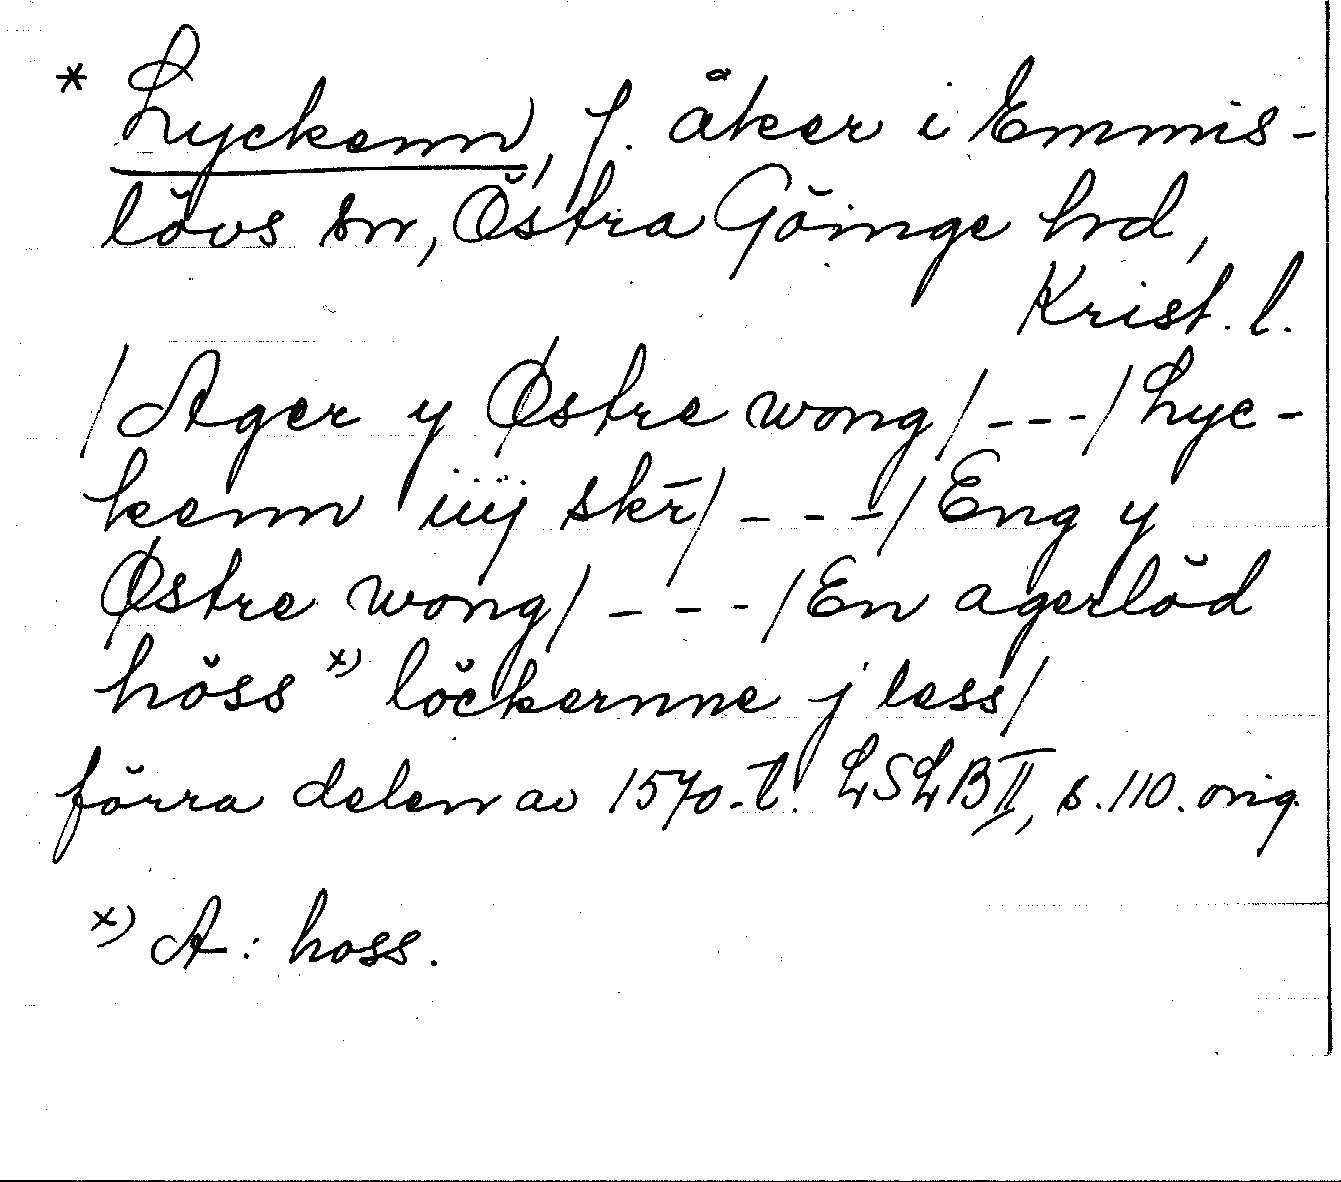 * Lyckenn, f. åker i Emmis-
lövs sn, Östra Göinge hrd,
Krist. l.
/Ager y Østre wong/---/Lyc-
kenn iiij skr̄/---/Eng y
Østre wong/---/En agerlöd
höss x) löckernne j less/
förra delen av 1570-t. LSLB II, s. 110. orig.
x) A: hoss.